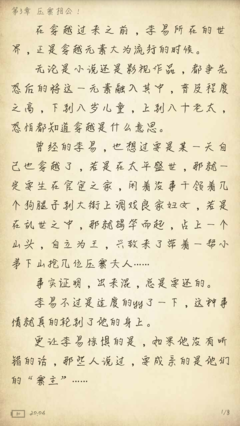 第1章 压寨相公！
在穿越过来之前，李易所在的世
界，正是穿越元素大为流行的时候。
无论是小说还是影视作品，都争先
恐后的将这一元素融入其中，普及程度
之高，下到八岁儿童，上到八十老太，
恐怕都知道穿越是什么意思。
曾经的李易，也想过要是某一天自
己也穿越了，若是在太平盛世，那就一
定寄生在官宦之家，闲着没事干领着几
个狗腿子到大街上调戏良家妇女，若是
在乱世之中，那就揭竿而起，占上一个
山头，自立为王，兴致来了带着一帮小
弟下山挖几位压寨夫人……
事实证明，出来混，总是要还的。
李易不过是适度的
了一下，这种事
情就真的轮到了他的身上。
更让李易惊惧的是，如果他没有听
错的话，那些人说过，要成亲的是他们
的“寨主”……
1/8